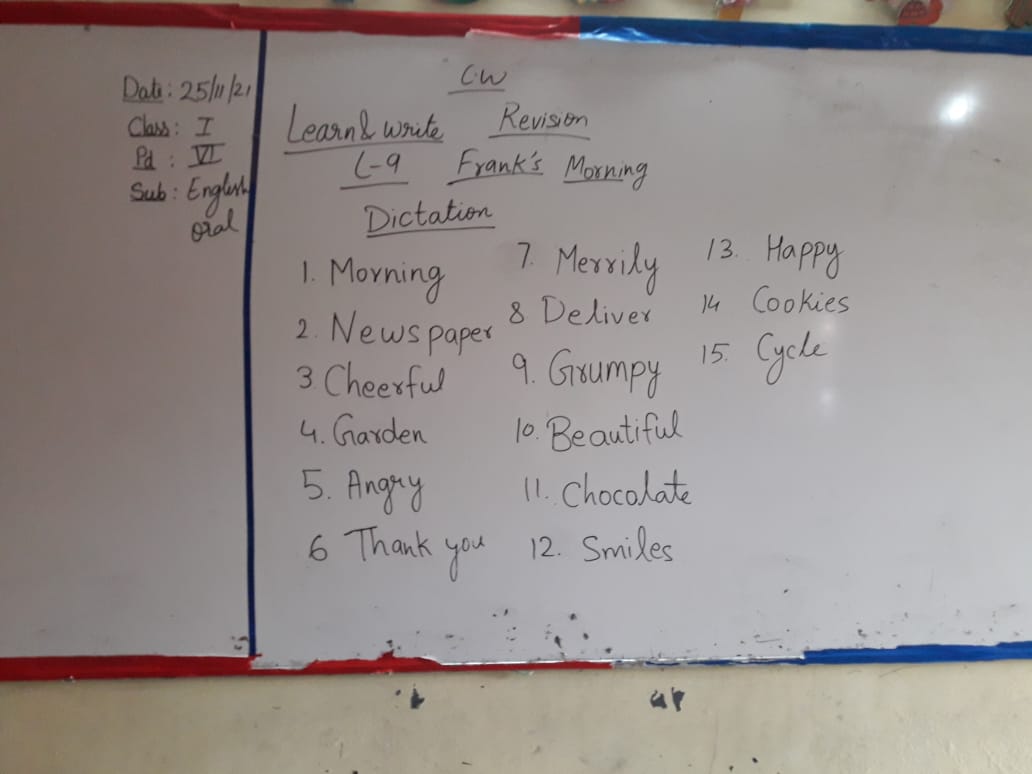 Date: 25/11/21
Class: I
Pd: VI
Sub: English
oral
C.W
Learn & write Revision
L-9 Frank's Morning
Dictation
1. Morning
2. Newspaper
3 Cheerful
4. Garden
5. Angry
6 Thank you
7. Merrily
8 Deliver
9. Grumpy
10. Beautiful
11. Chocolate
12. Smiles
13. Happy
14 Cookies
15. Cycle